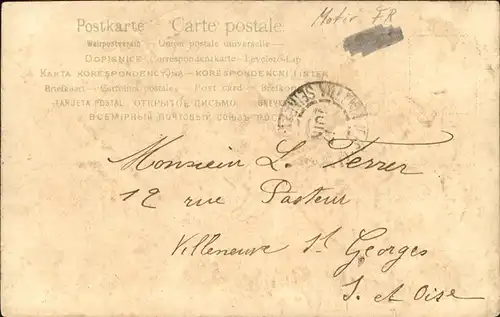 Motiv FR
Postkarte Carte postale
Weltpostverein — Union postale universelle
DOPISNICE — Correspondenzkarte — Levelező-Lap
KARTA KORESPONDENCYJNA — KORESPONDENČNÍ LÍSTEK
Briefkaart — Cartolina postale — Post card — Brefkort
TARJETA POSTAL — ОТКРЫТОЕ ПИСЬМО — BREVKORT
ВСЕМІРНЫЙ ПОЧТОВЫЙ СОЮЗЪ РОССІЯ
JUIN
Monsieur L. Ferrer
12 rue Pasteur
Villeneuve St Georges
S. et Oise